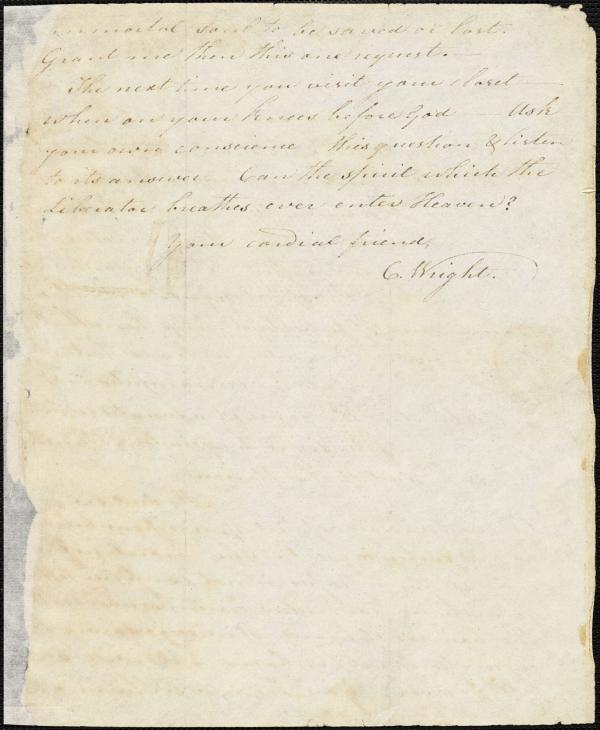 immortal soul to be saved or lost.
Grant me then this one request.—
The next time you visit your closet—
when on your knees before God — Ask
your own conscience this question & listen
to its answer. Can the spirit which the
Liberator breathes ever enter Heaven?
Your cordial friend,
C. Wright.